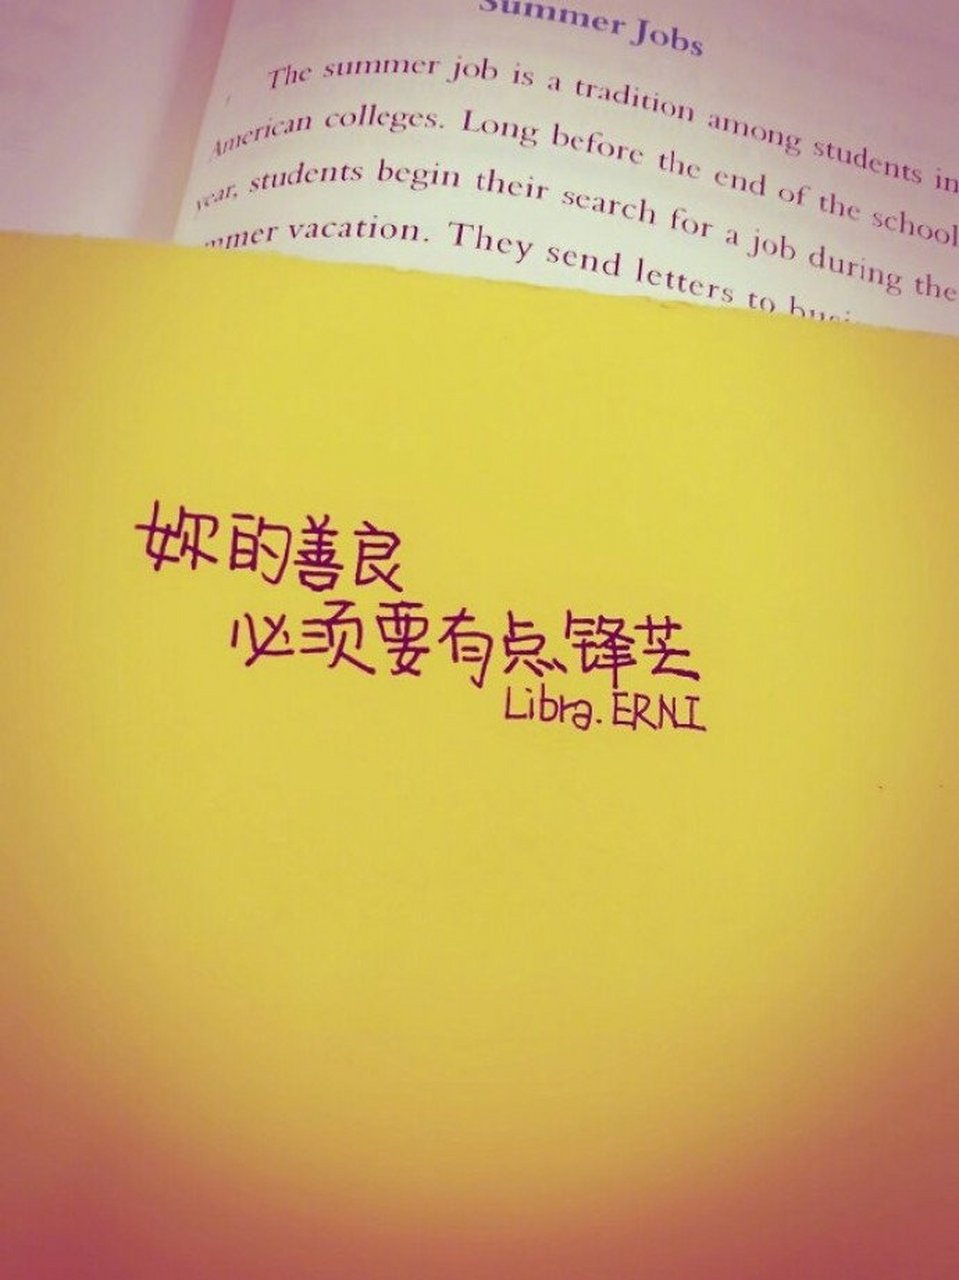 Summer Jobs
The summer job is a tradition among students in
American colleges. Long before the end of the school
year, students begin their search for a job during the
vacation. They send letters to
妳的善良
必须要有点锋芒
Libra.ERNI